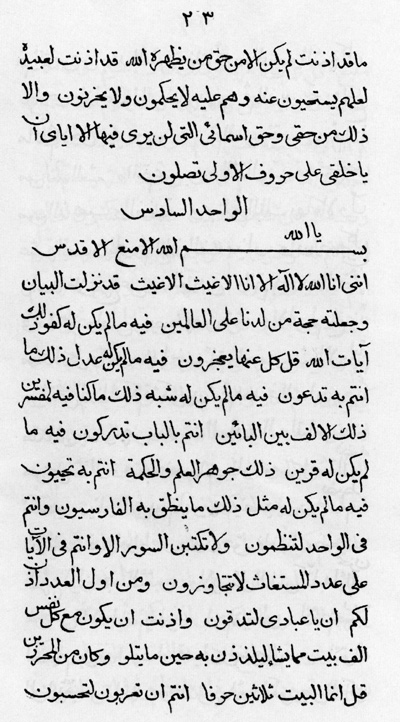 ٢٣
ما قد اذنت لم يكن الا من حق من يظهره الله قد اذنت لعبيده
لعلهم يستحيون عنه وهم عليه لا يحكمون ولا يحزنون والا
ذلك من حقي وحق اسمائي التي لن يرى فيها الا اياي ان
يا خلقي على حروف الاولى تصلون
الواحد السادس
يا الله
بسم الله الامنع الاقدس
انني انا الله لا اله الا انا الاغيث الاغيث قد نزلت البيان
وجعلته حجة من لدنا على العالمين فيه ما لم يكن له كفو ذلك
آيات الله قل كل عنها يعجزون فيه ما لم يكن له عدل ذلك ما
انتم به تدعون فيه ما لم يكن له شبه ذلك ما كنا فيه لمفسرين
ذلك الالف بين البائين انتم بالباب تدركون فيه ما
لم يكن له قرين ذلك جوهر العلم والحكمة انتم به تجيبون
فيه ما لم يكن له مثل ذلك ما ينطق به الفارسيون وانتم
في الواحد لتنظمون ولا تكتبن السور الا وانتم في الآيات
على عدد المستغاث لا تتجاوزون ومن اول العدد اذن
لكم ان يا عبادي لتدقون واذنت ان يكون مع كل نفس
الف بيت مما يشاء ليلذذن به حين ما يتلو وكان من المحرزين
قل انما البيت ثلاثين حرفا انتم ان تعربون لتحسبون